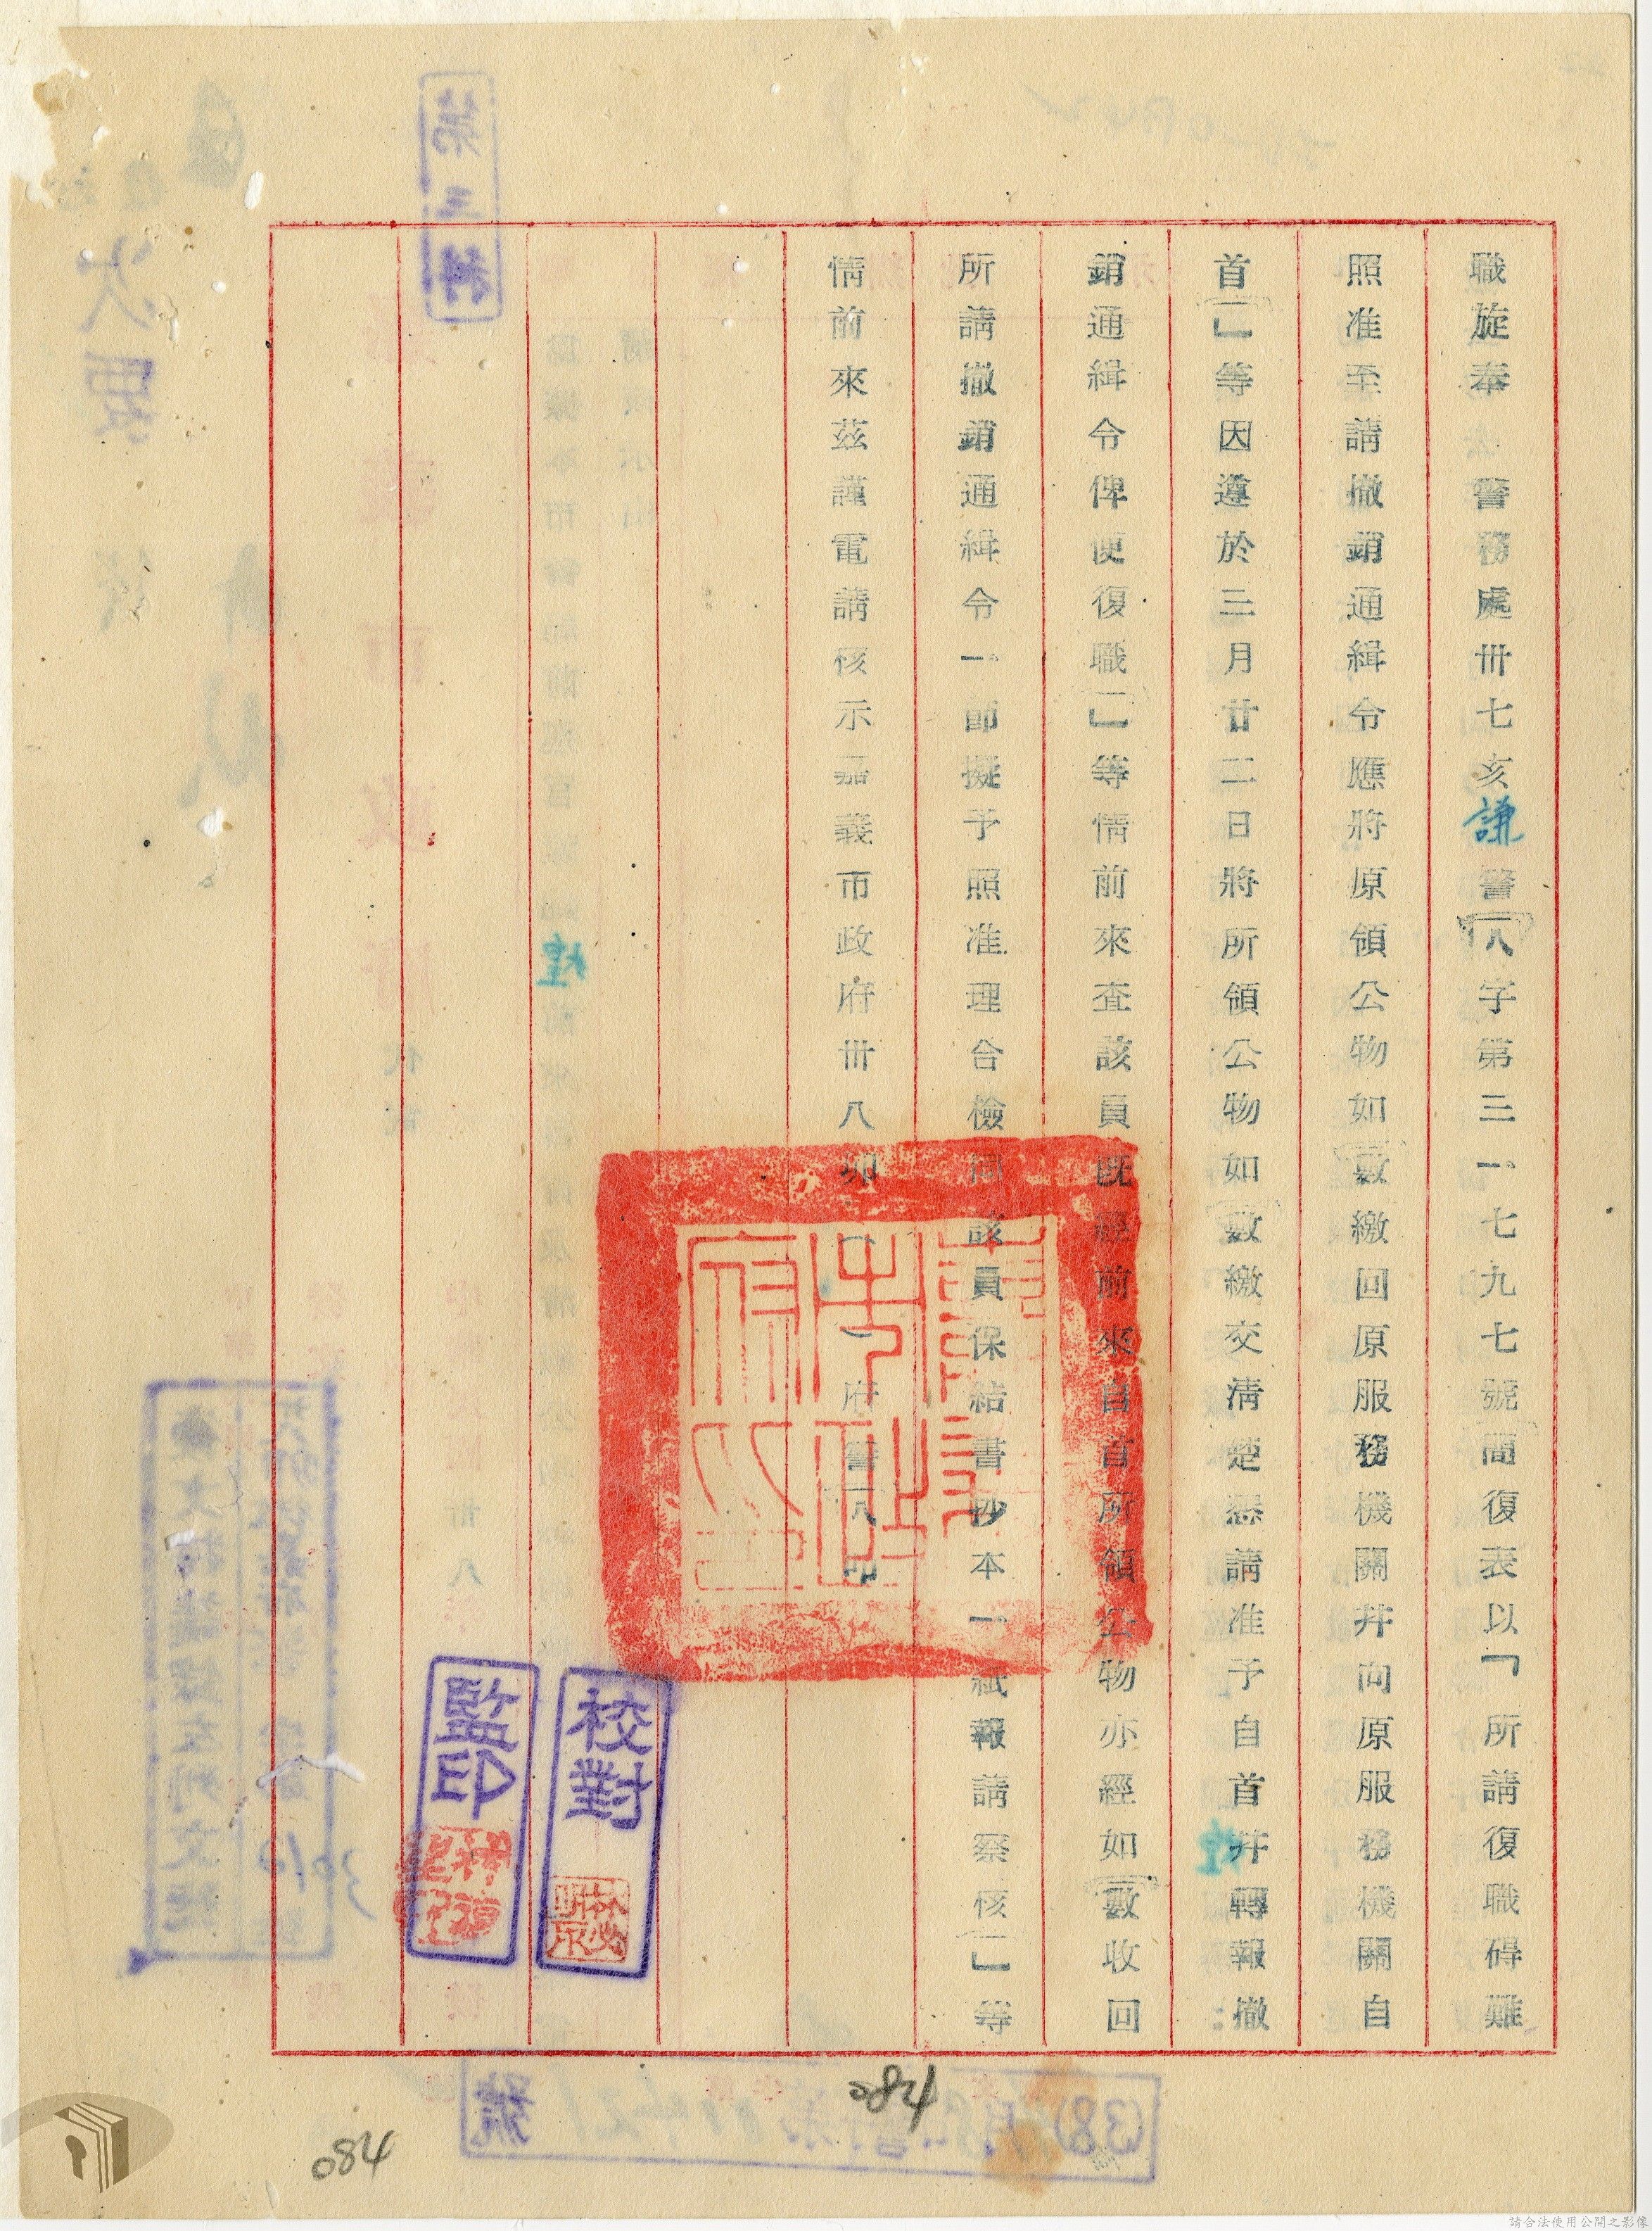 職旋奉　警務處卅七亥謙警人字第三一七九七號簡復表以「所請復職碍難
照准至請撤銷通緝令應將原領公物如數繳回原服務機關并向原服務機關自
首」等因遵於三月廿二日將所領公物如數繳交清楚懇請准予自首并轉報撤
銷通緝令俾便復職」等情前來查該員既經前來自首所領公物亦經如數收回
所請撤銷通緝令一節擬予照准理合檢同該員保結書抄本一紙報請察核」等
情前來茲謹電請核示嘉義市政府卅八卯（　）府警人印
校對
監印
第三科
084
084
請合法使用公開之影像